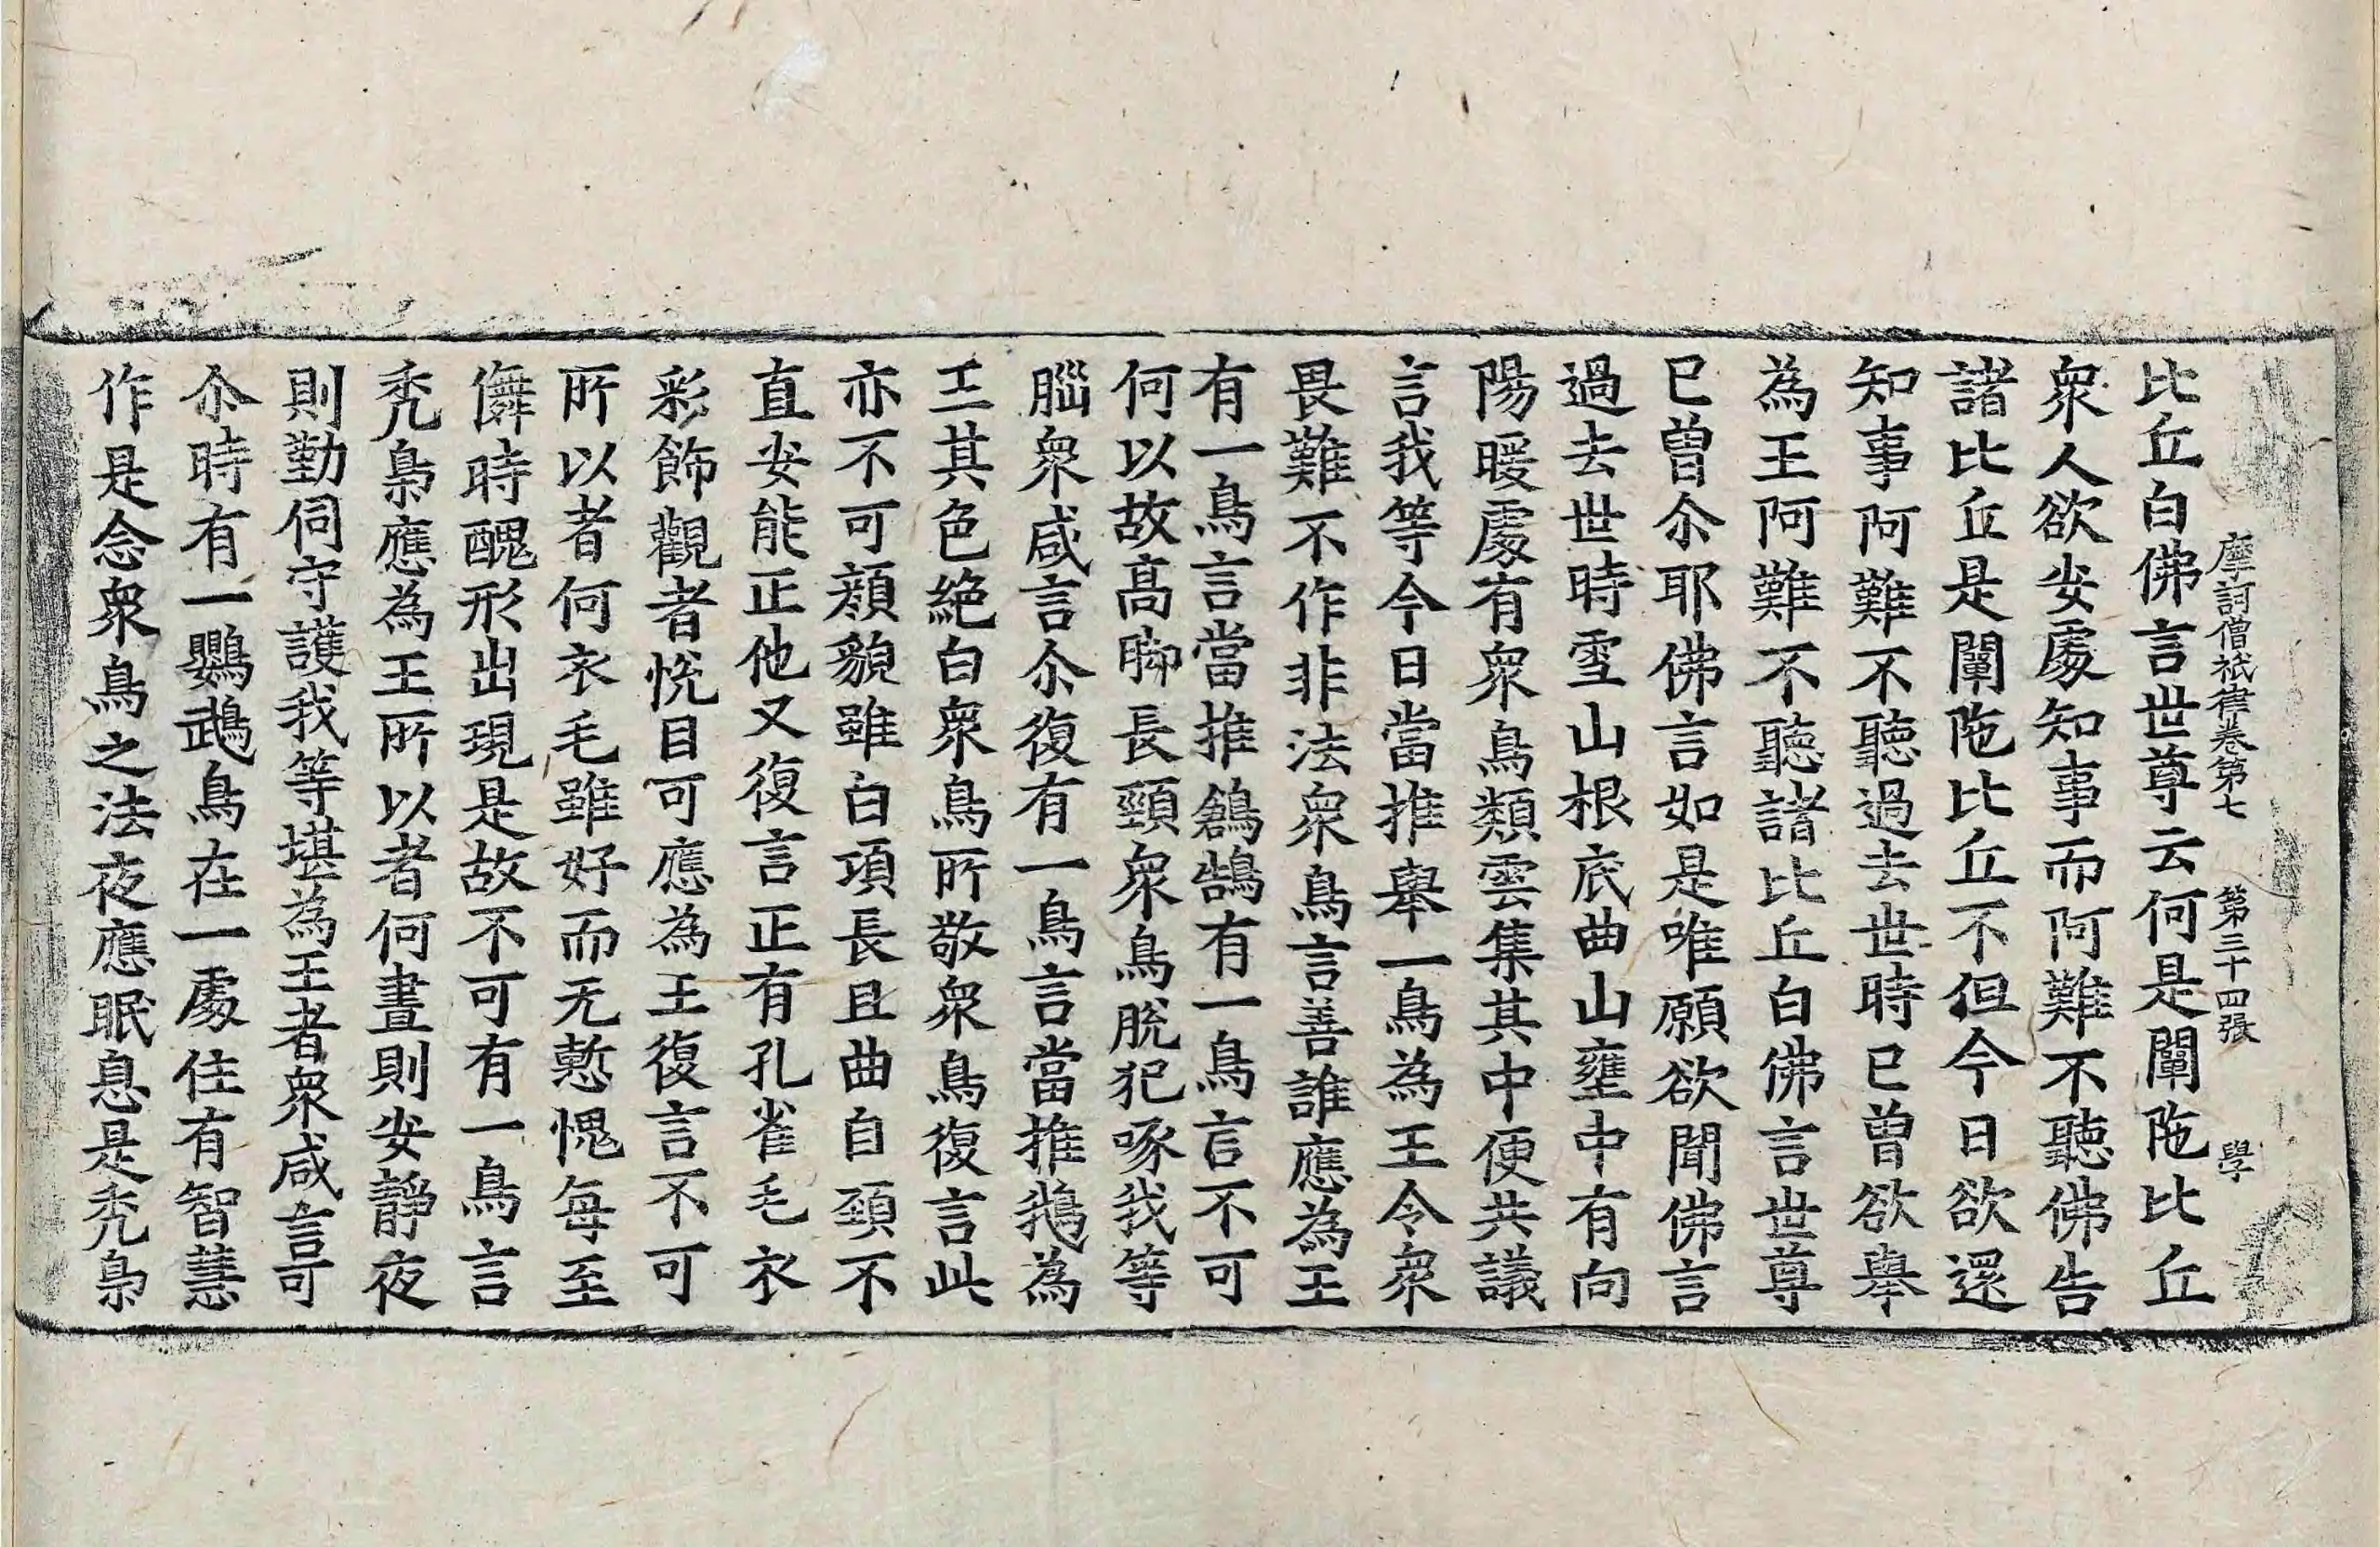 摩訶僧祇律卷第七 第三十四張 學
比丘白佛言世尊云何是闡陁比丘
衆人欲安處知事而阿難不聽佛告
諸比丘是闡陁比丘不但今日欲還
知事阿難不聽過去世時已曾欲舉
為王阿難不聽諸比丘白佛言世尊
已曾尒耶佛言如是唯願欲聞佛言
過去世時雪山根底曲山壅中有向
陽暖處有衆鳥類雲集其中便共議
言我等今日當推舉一鳥為王令衆
畏難不作非法衆鳥言善誰應為王
有一鳥言當推鶬鵠有一鳥言不可
何以故高脚長頸衆鳥脫犯啄我等
腦衆咸言尒復有一鳥言當推鵝為
王其色絶白衆鳥所敬衆鳥復言此
亦不可顔貌雖白項長且曲自頸不
直安能正他又復言正有孔雀毛衣
彩飾觀者悅目可應為王復言不可
所以者何衣毛雖好而无慙愧每至
儛時醜形出現是故不可有一鳥言
禿梟應為王所以者何晝則安靜夜
則勤伺守護我等堪為王者衆咸言可
尒時有一鸚鵡鳥在一處住有智慧
作是念衆鳥之法夜應眠息是禿梟